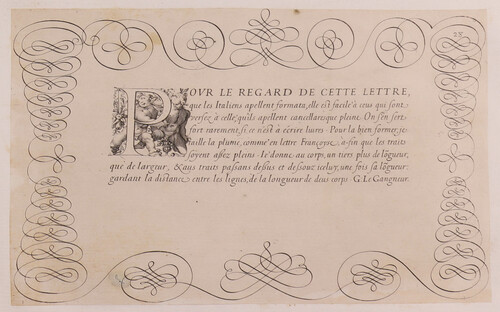 28
POVR LE REGARD DE CETTE LETTRE,
que les Italiens apellent formata, elle est facile à ceus qui sont
versez à celle, qu'ils apellent cancellaresque pleine. On s'en sert
fort rarement, si ce n'est à écrire liures. Pour la bien former, je
taille la plume, comme en lettre Françoyse, à fin que les traits
soyent assez pleins. Je donne au corps, un tiers plus de lõgueur,
que de largeur, & aus traits passans dessus et dessouz iceluy, une fois sa lõgueur:
gardant la distance entre les lignes, de la longueur de deus corps. G. Le Gangneur.